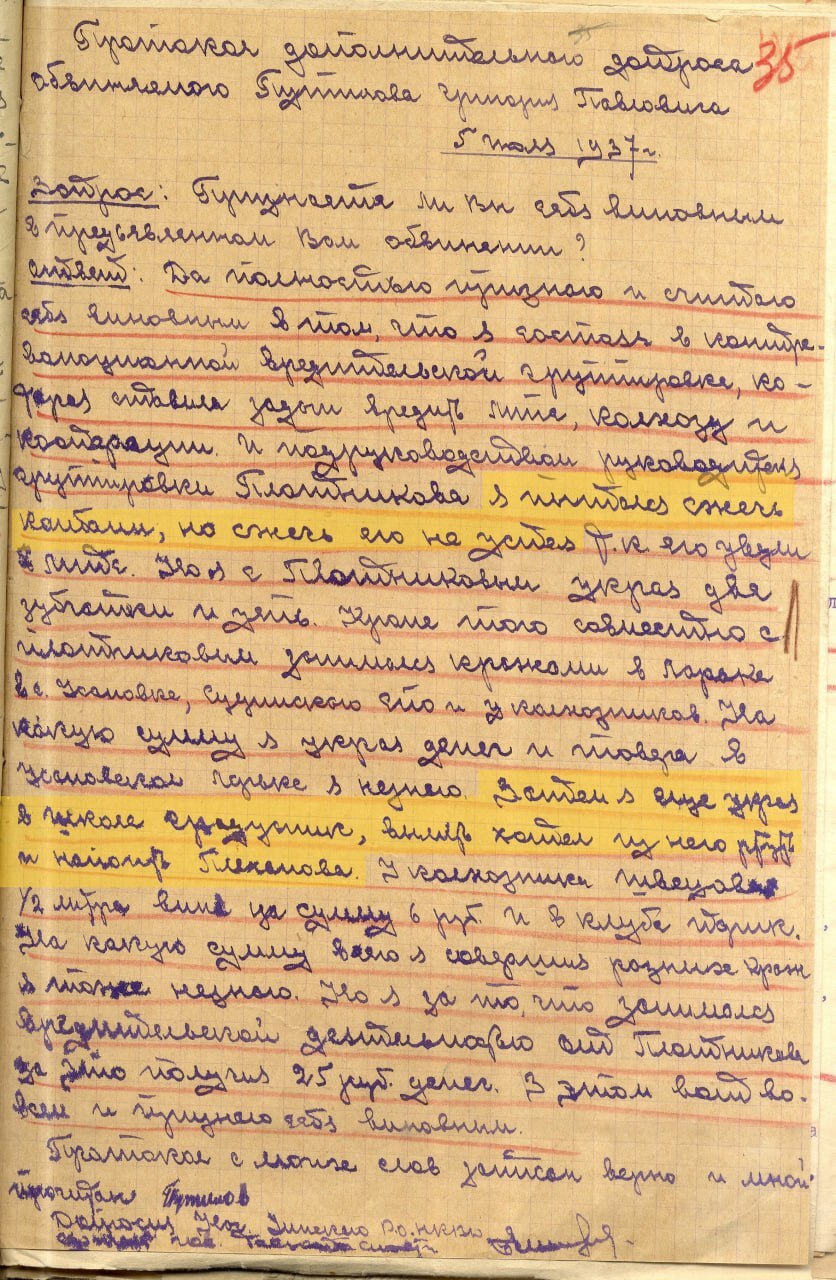 35
Протокол дополнительного допроса
обвиняемого Путилова Григория Павловича
5 июля 1937 г.
Вопрос: Признаете ли Вы себя виновным
в предъявленном Вам обвинении?
Ответ: Да полностью признаю и считаю
себя виновным в том, что я состоял в контре-
волюционной вредительской группировке, ко-
торая ставила задачи вредить мтс, колхозу и
кооперации. И подруководством руководителя
группировки Плотникова я пытался сжечь
комбайн, но сжечь его не успел т.к. его увели
в мтс. Но я с Плотниковым украл две
зубчатки и цепь. Кроме того совместно с
Плотниковым занимался кражами в ларьке
в с. Усановке, сельпо и у колхозников. На
какую сумму я украл денег и товара в
Усановском ларьке я незнаю. Затем я еще украл
в школе градусник, вылить хотел из него ртуть
и напоить Плеханова. У колхозника Швецова
1/2 литра вина на сумму 6 руб. и в клубе
На какую сумму всего я совершил разных краж
я тоже незнаю. Но я за то, что занимался
вредительской деятельностью от Плотникова
за это получил 25 руб. денег. В этом вот во-
всем и признаю себя виновным.
Протокол с моих слов записан верно и мной
прочитан Путилов
Допросил Нач. РО.НКВД